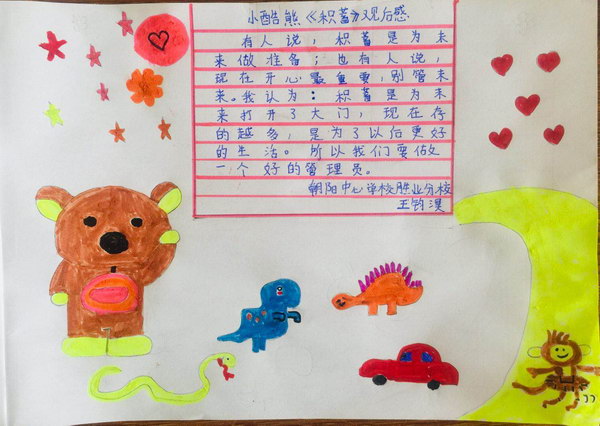 小酷熊《积蓄》观后感
有人说，积蓄是为未
来做准备；也有人说，
现在开心最重要，别管未
来。我认为：积蓄是为未
来打开了大门，现在存
的越多，是为了以后更好
的生活。所以我们要做
一个好的管理员。
朝阳中心学校胜业分校
王钧淏